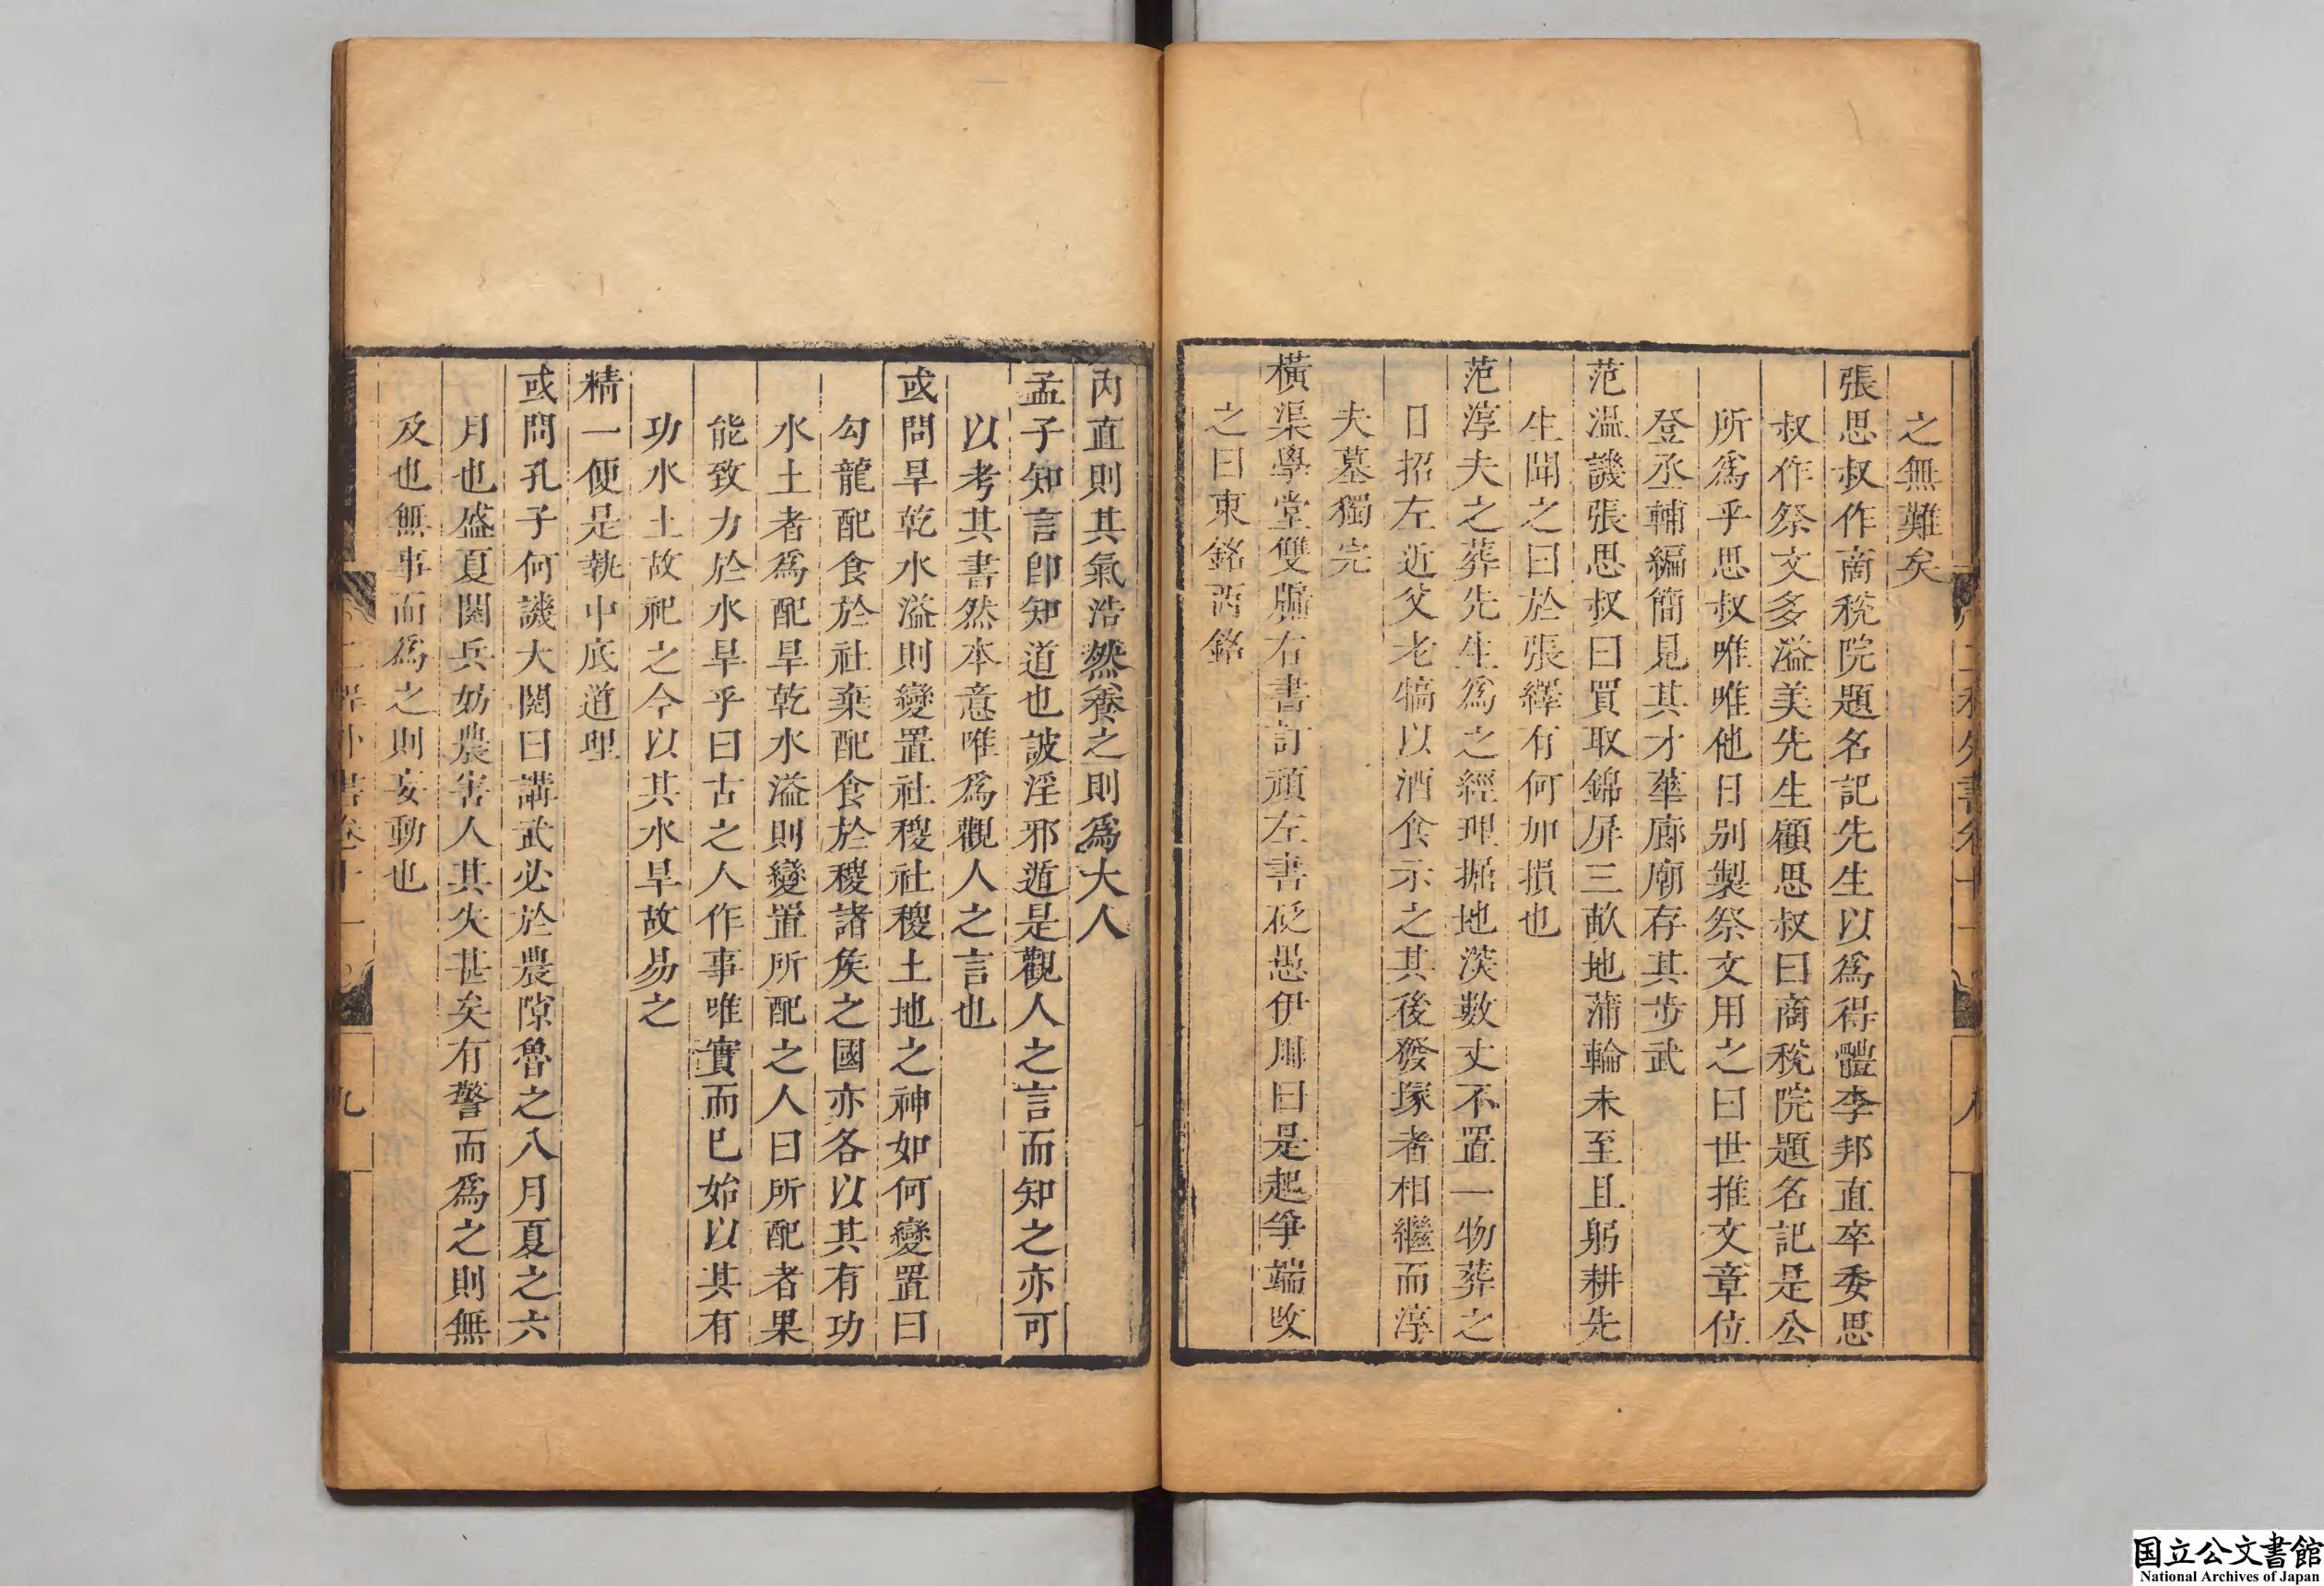 之無難矣
張思叔作商稅院題名記先生以爲得體李邦直卒委思
叔作祭文多溢美先生顧思叔曰商稅院題名記是公
所爲乎思叔唯唯他日别製祭文用之曰世推文章位
登丞輔編簡見其才華廊廟存其步武
范溫譏張思叔曰買取錦屏三畝地蒲輪未至且躬耕先
生聞之曰於張繹有何加損也
范淳夫之葬先生爲之經理掘地深數丈不置一物葬之
日招左近父老犒以酒食示之其後發塚者相繼而淳
夫墓獨完
橫渠學堂雙牖右書訂頑左書砭愚伊川曰是起爭端改
之曰東銘西銘
二程外書卷十一
八
內直則其氣浩然養之則爲大人
孟子知言卽知道也詖淫邪遁是觀人之言而知之亦可
以考其書然本意唯爲觀人之言也
或問旱乾水溢則變置社稷社稷土地之神如何變置曰
勾龍配食於社棄配食於稷諸矦之國亦各以其有功
水土者爲配旱乾水溢則變置所配之人曰所配者果
能致力於水旱乎曰古之人作事唯實而已始以其有
功水土故祀之今以其水旱故易之
精一便是執中底道理
或問孔子何譏大閱曰講武必於農隙魯之八月夏之六
月也盛夏閱兵妨農害人其失甚矣有警而爲之則無
及也無事而爲之則妄動也
二程外書卷十一
九
国立公文書館
National Archives of Japan